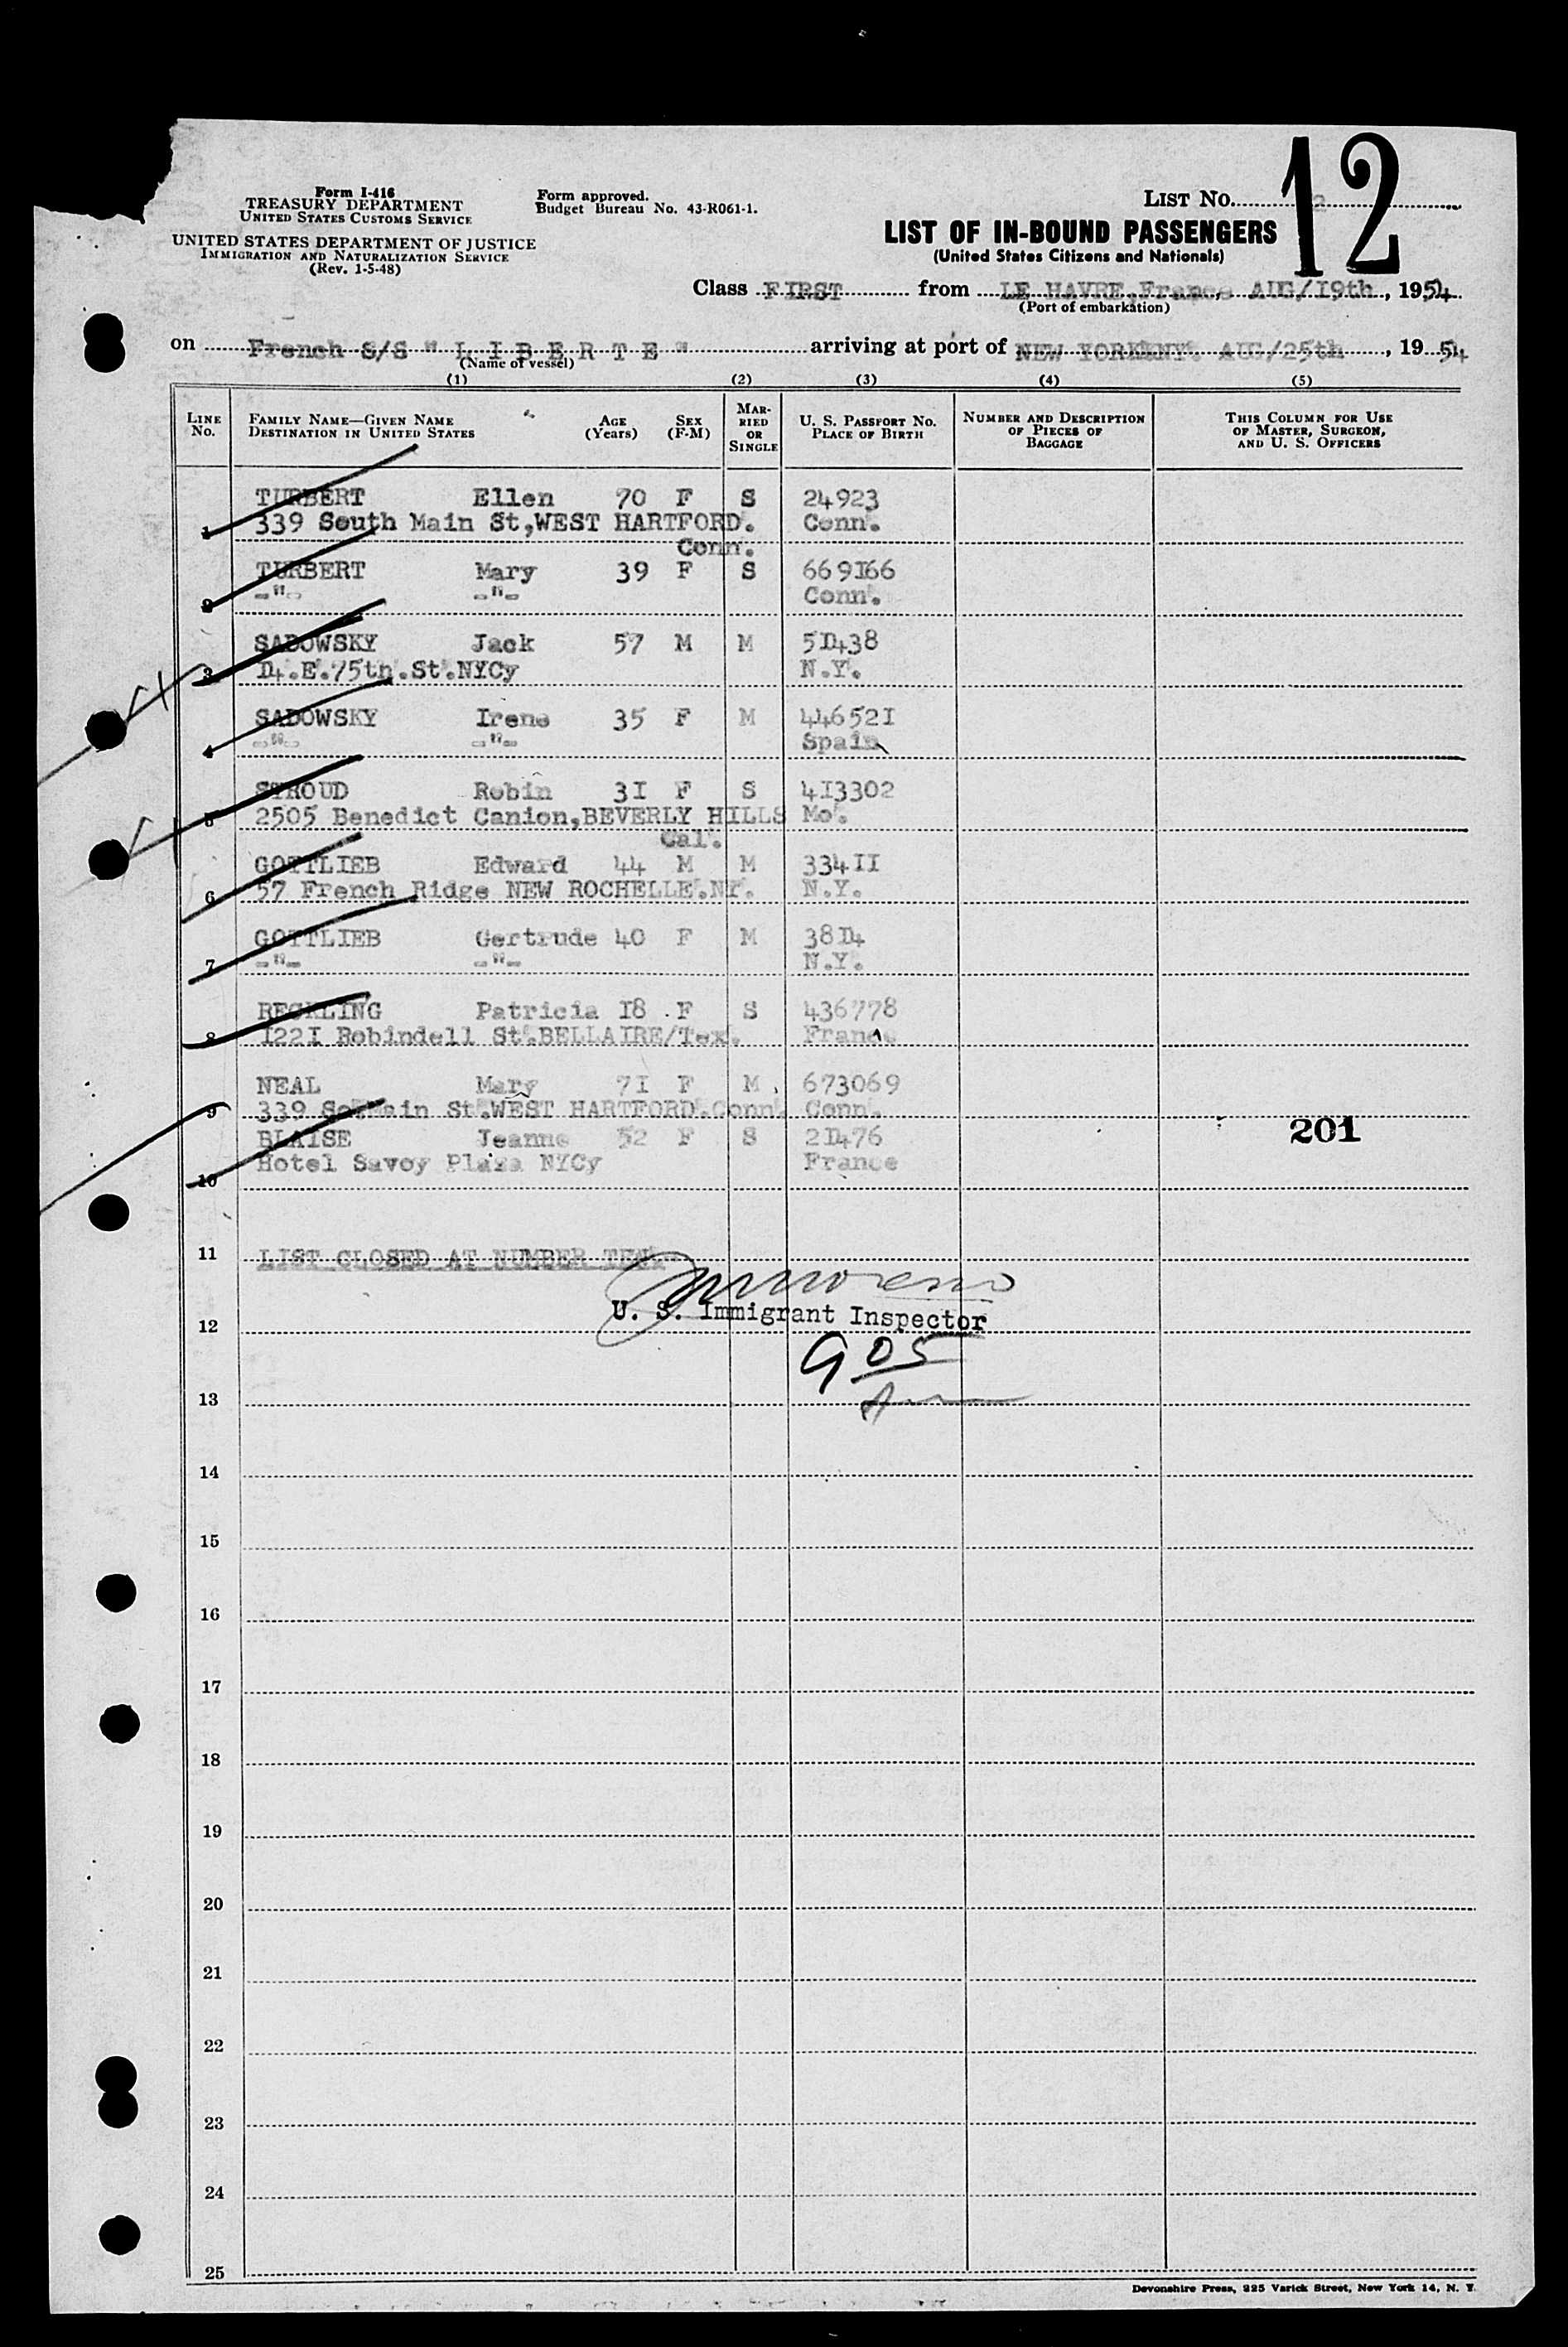 12
Form I-416
TREASURY DEPARTMENT
UNITED STATES CUSTOMS SERVICE
UNITED STATES DEPARTMENT OF JUSTICE
IMMIGRATION AND NATURALIZATION SERVICE
(Rev. 1-5-48)
Form approved.
Budget Bureau No. 43-R061-1.
LIST NO. 2
LIST OF IN-BOUND PASSENGERS
(United States Citizens and Nationals)
Class FIRST from LE HAVRE,France AUG/I9th, 1954
(Port of embarkation)
on French S/S " L I B E R T E " arriving at port of NEW YORK NY. AUG/25th, 1954
(Name of vessel)
(1) (2) (3) (4) (5)
LINE No. FAMILY NAME—GIVEN NAME DESTINATION IN UNITED STATES AGE (Years) SEX (F-M) MARRIED OR SINGLE U. S. PASSPORT NO. PLACE OF BIRTH NUMBER AND DESCRIPTION OF PIECES OF BAGGAGE THIS COLUMN FOR USE OF MASTER, SURGEON, AND U. S. OFFICERS
TURBERT Ellen 70 F S 24923
1 339 South Main St,WEST HARTFORD. Conn.
Conn.
TURBERT Mary 39 F S 669I66
2 -"- -"- Conn.
SADOWSKY Jack 57 M M 5I438
3 I4.E.75th.St.NYCy N.Y.
SADOWSKY Irene 35 F M 44652I
4 -"- -"- Spain
STROUD Robin 3I F S 4I3302
5 2505 Benedict Canion,BEVERLY HILLS Mo.
Cal.
GOTTLIEB Edward 44 M M 334II
6 57 French Ridge NEW ROCHELLE.NY. N.Y.
GOTTLIEB Gertrude 40 F M 38I4
7 -"- -"- N.Y.
RECKLING Patricia I8 F S 436778
8 I22I Robindell St.BELLAIRE/Tex. France
NEAL Mary 7I F M 673069
9 339 So.Main St.WEST HARTFORD.Conn. Conn.
BLAISE Jeanne 52 F S 2I476
201
10 Hotel Savoy Plaza NYCy France
11 LIST CLOSED AT NUMBER TEN
U. S. Immigrant Inspector
12
905
13
14
15
16
17
18
19
20
21
22
23
24
25
Devonshire Press, 225 Varick Street, New York 14, N. Y.